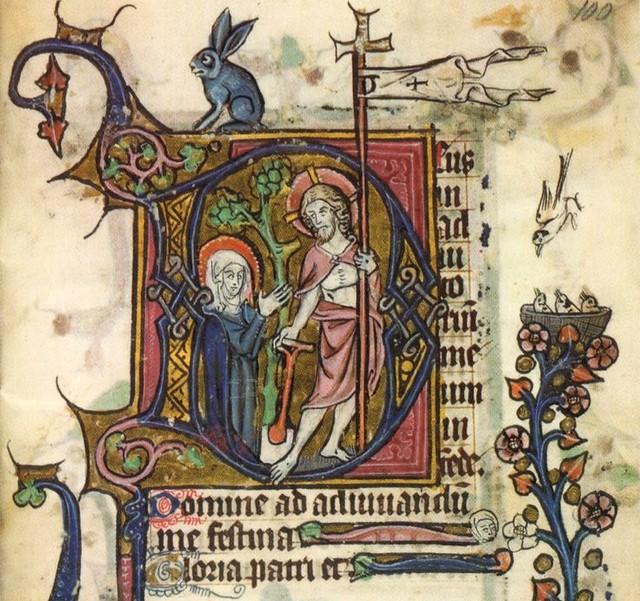 100
Deus
in
ad
iu
to
riū
me
um
in
tēde.
Domine ad adiuuandū
me festina
Gloria patri et